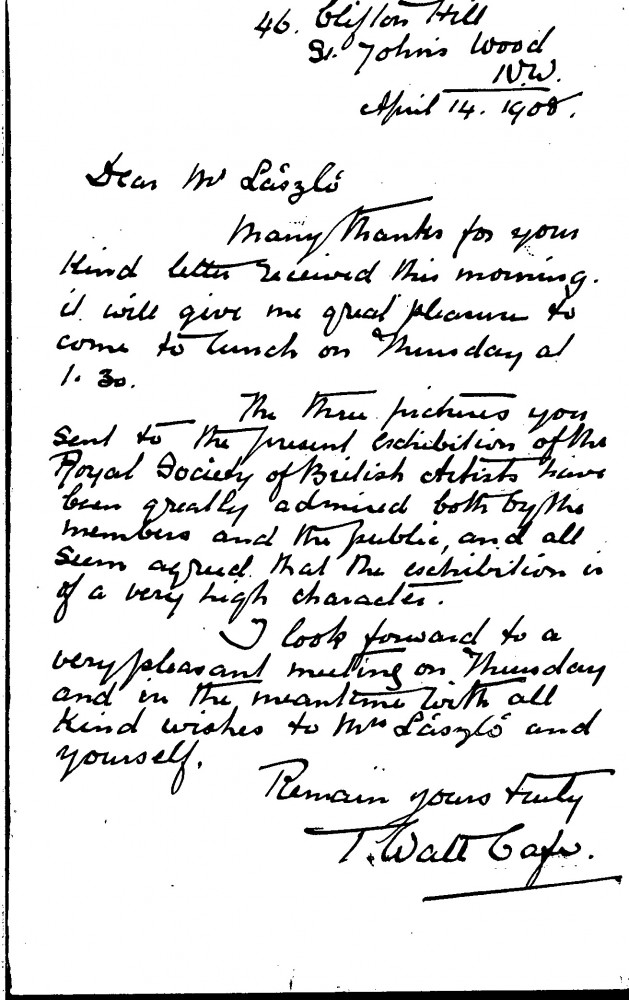 46. Clifton Hill
St. John's Wood
N.W.
April 14. 1908.
Dear Mr László
Many thanks for your
kind letter received this morning.
it will give me great pleasure to
come to lunch on Thursday at
1.30.
The three pictures you
sent to the present exhibition of the
Royal Society of British Artists have
been greatly admired both by the
members and the public, and all
seem agreed that the exhibition is
of a very high character.
I look forward to a
very pleasant meeting on Thursday
and in the meantime with all
kind wishes to Mrs László and
yourself.
Remain yours truly
T. Watt Cafe.